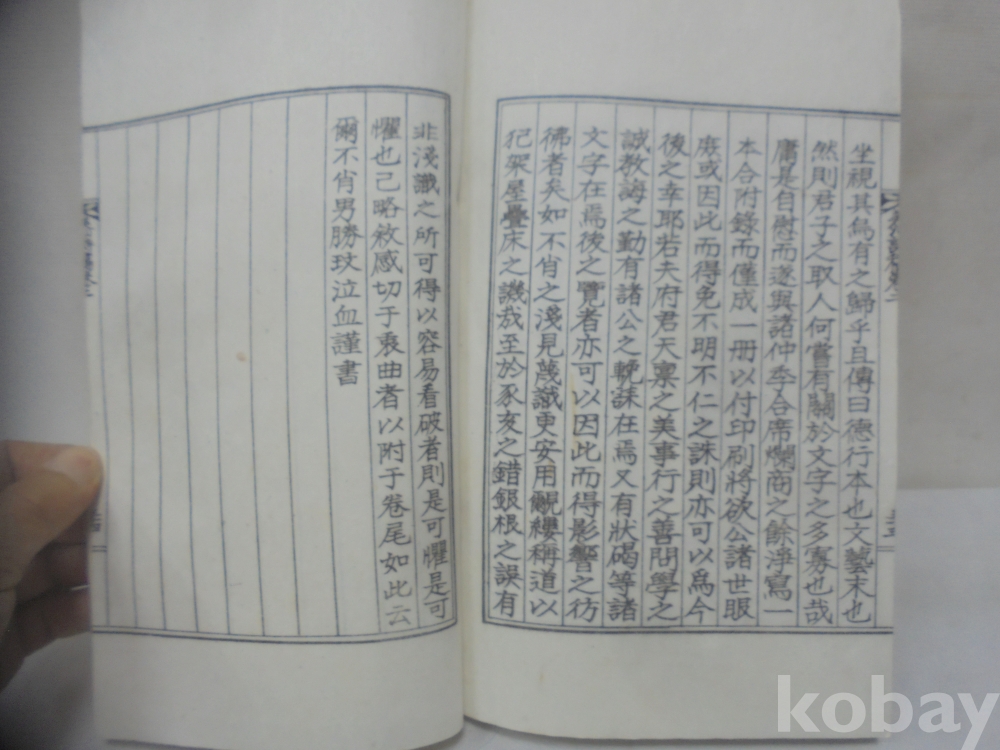 坐視其烏有之歸乎且傳曰德行本也文藝末也
然則君子之取人何嘗有關於文字之多寡也哉
庸是自慰而遂與諸仲季合席爛商之餘淨寫一
本合附錄而僅成一册以付印刷將欲公諸世眼
庶或因此而得免不明不仁之誅則亦可以爲今
後之幸耶若夫府君天稟之美事行之善問學之
誠敎誨之勤有諸公之輓誄在焉又有狀碣等諸
文字在焉後之覽者亦可以因此而得影響之彷
彿者矣如不肖之淺見蔑識更安用覼縷稱道以
犯架屋疊床之譏哉至於豕亥之錯銀根之誤有
非淺識之所可得以容易看破者則是可懼是可
懼也已略敘感切于衷曲者以附于卷尾如此云
爾不肖男勝玟泣血謹書
kobay